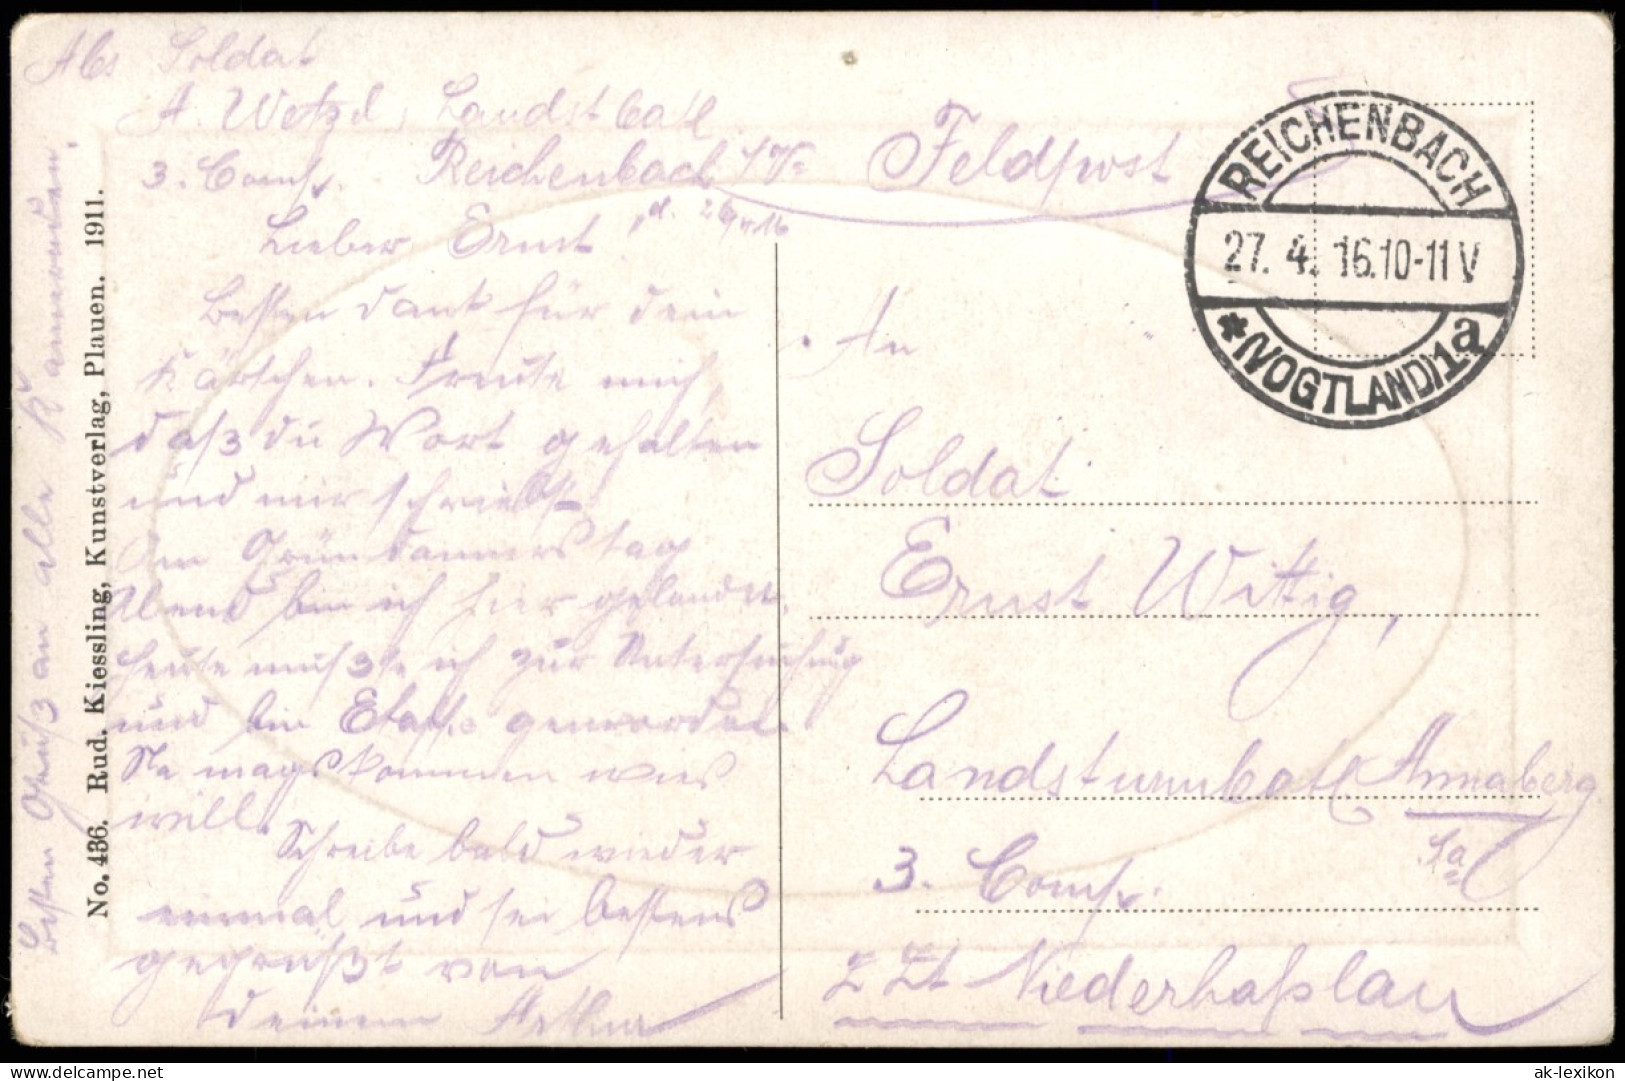 Abs Soldat
A. Wetzel, Landst Batl
3. Comp. Reichenbach i/V.
Feldpost
d. 26/4 16
Lieber Ernst
Besten Dank für dein
Kärtchen. Freute mich,
daß du Wort gehalten
und mir schriebst.
Am Gründonnerstag
Abend bin ich hier gelandet.
Heute mußte ich zur Untersuchung
und bin Etappe geworden.
Na mags kommen wies
will.
Schreibe bald wieder
einmal und sei bestens
gegrüßt von
deinem Arthur
Besten Gruß an alle K
No. 436. Rud. Kiessling, Kunstverlag, Plauen. 1911.
REICHENBACH
27. 4. 16.10-11V
* (VOGTLAND) 1a
An
Soldat
Ernst Wittig,
Landsturmbatl Annaberg
i/a
3. Comp.
z Zt Niederhaßlau
www.delcampe.net
ak-lexikon